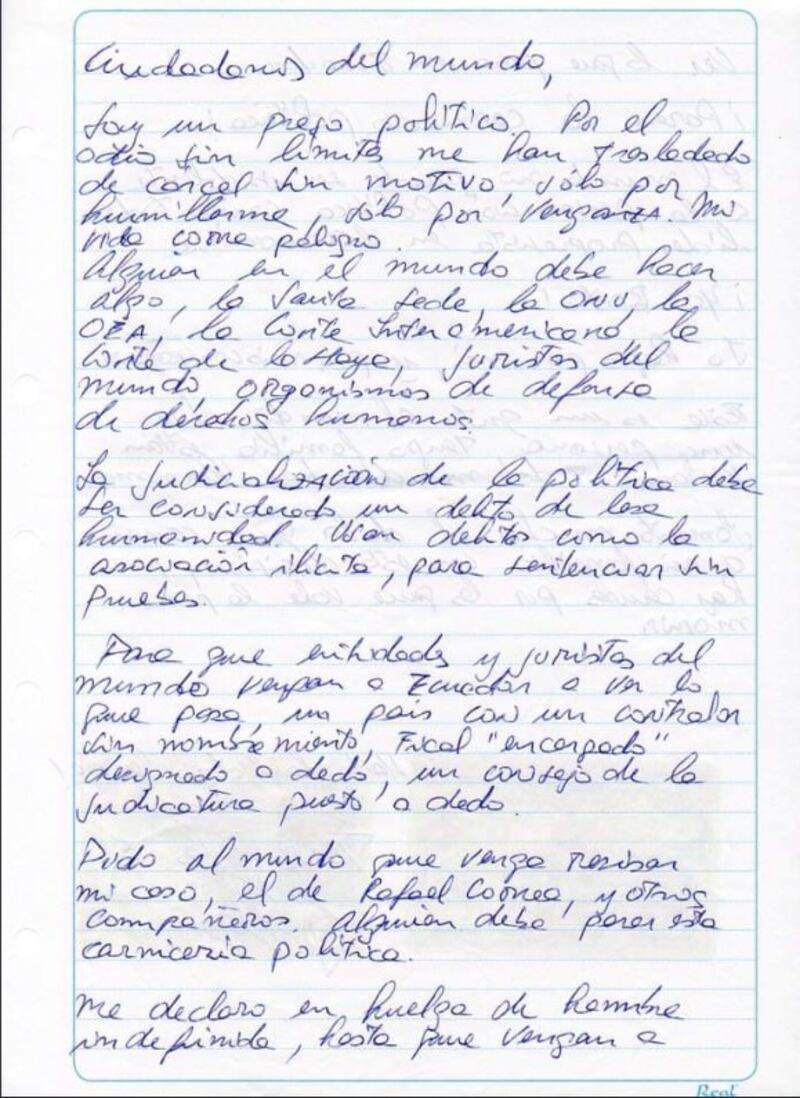 Ciudadanos del mundo,
Soy un preso político. Por el
odio sin límites me han trasladado
de carcel sin motivo, sólo por
humillarme, sólo por venganza. Mi
vida corre peligro.
Alguien en el mundo debe hacer
algo, la Santa Sede, la ONU, la
OEA, la Corte Interamericana, la
Corte de la Haya, juristas del
mundo, organismos de defensa
de derechos humanos.
La judicialización de la política debe
ser considerado un delito de lesa
humanidad. Usan delitos como la
asociación ilícita, para sentenciar sin
pruebas.
Para que entidades y juristas del
mundo vengan a Ecuador a ver lo
que pasa, un país con un contralor
sin nombramiento, Fiscal "encargado"
designado a dedo, un consejo de la
judicatura puesto a dedo.
Pido al mundo que venga revisar
mi caso, el de Rafael Correa, y otros
compañeros. Alguien debe parar esta
carniceria política.
Me declaro en huelga de hambre
indefinida, hasta que vengan a
Real